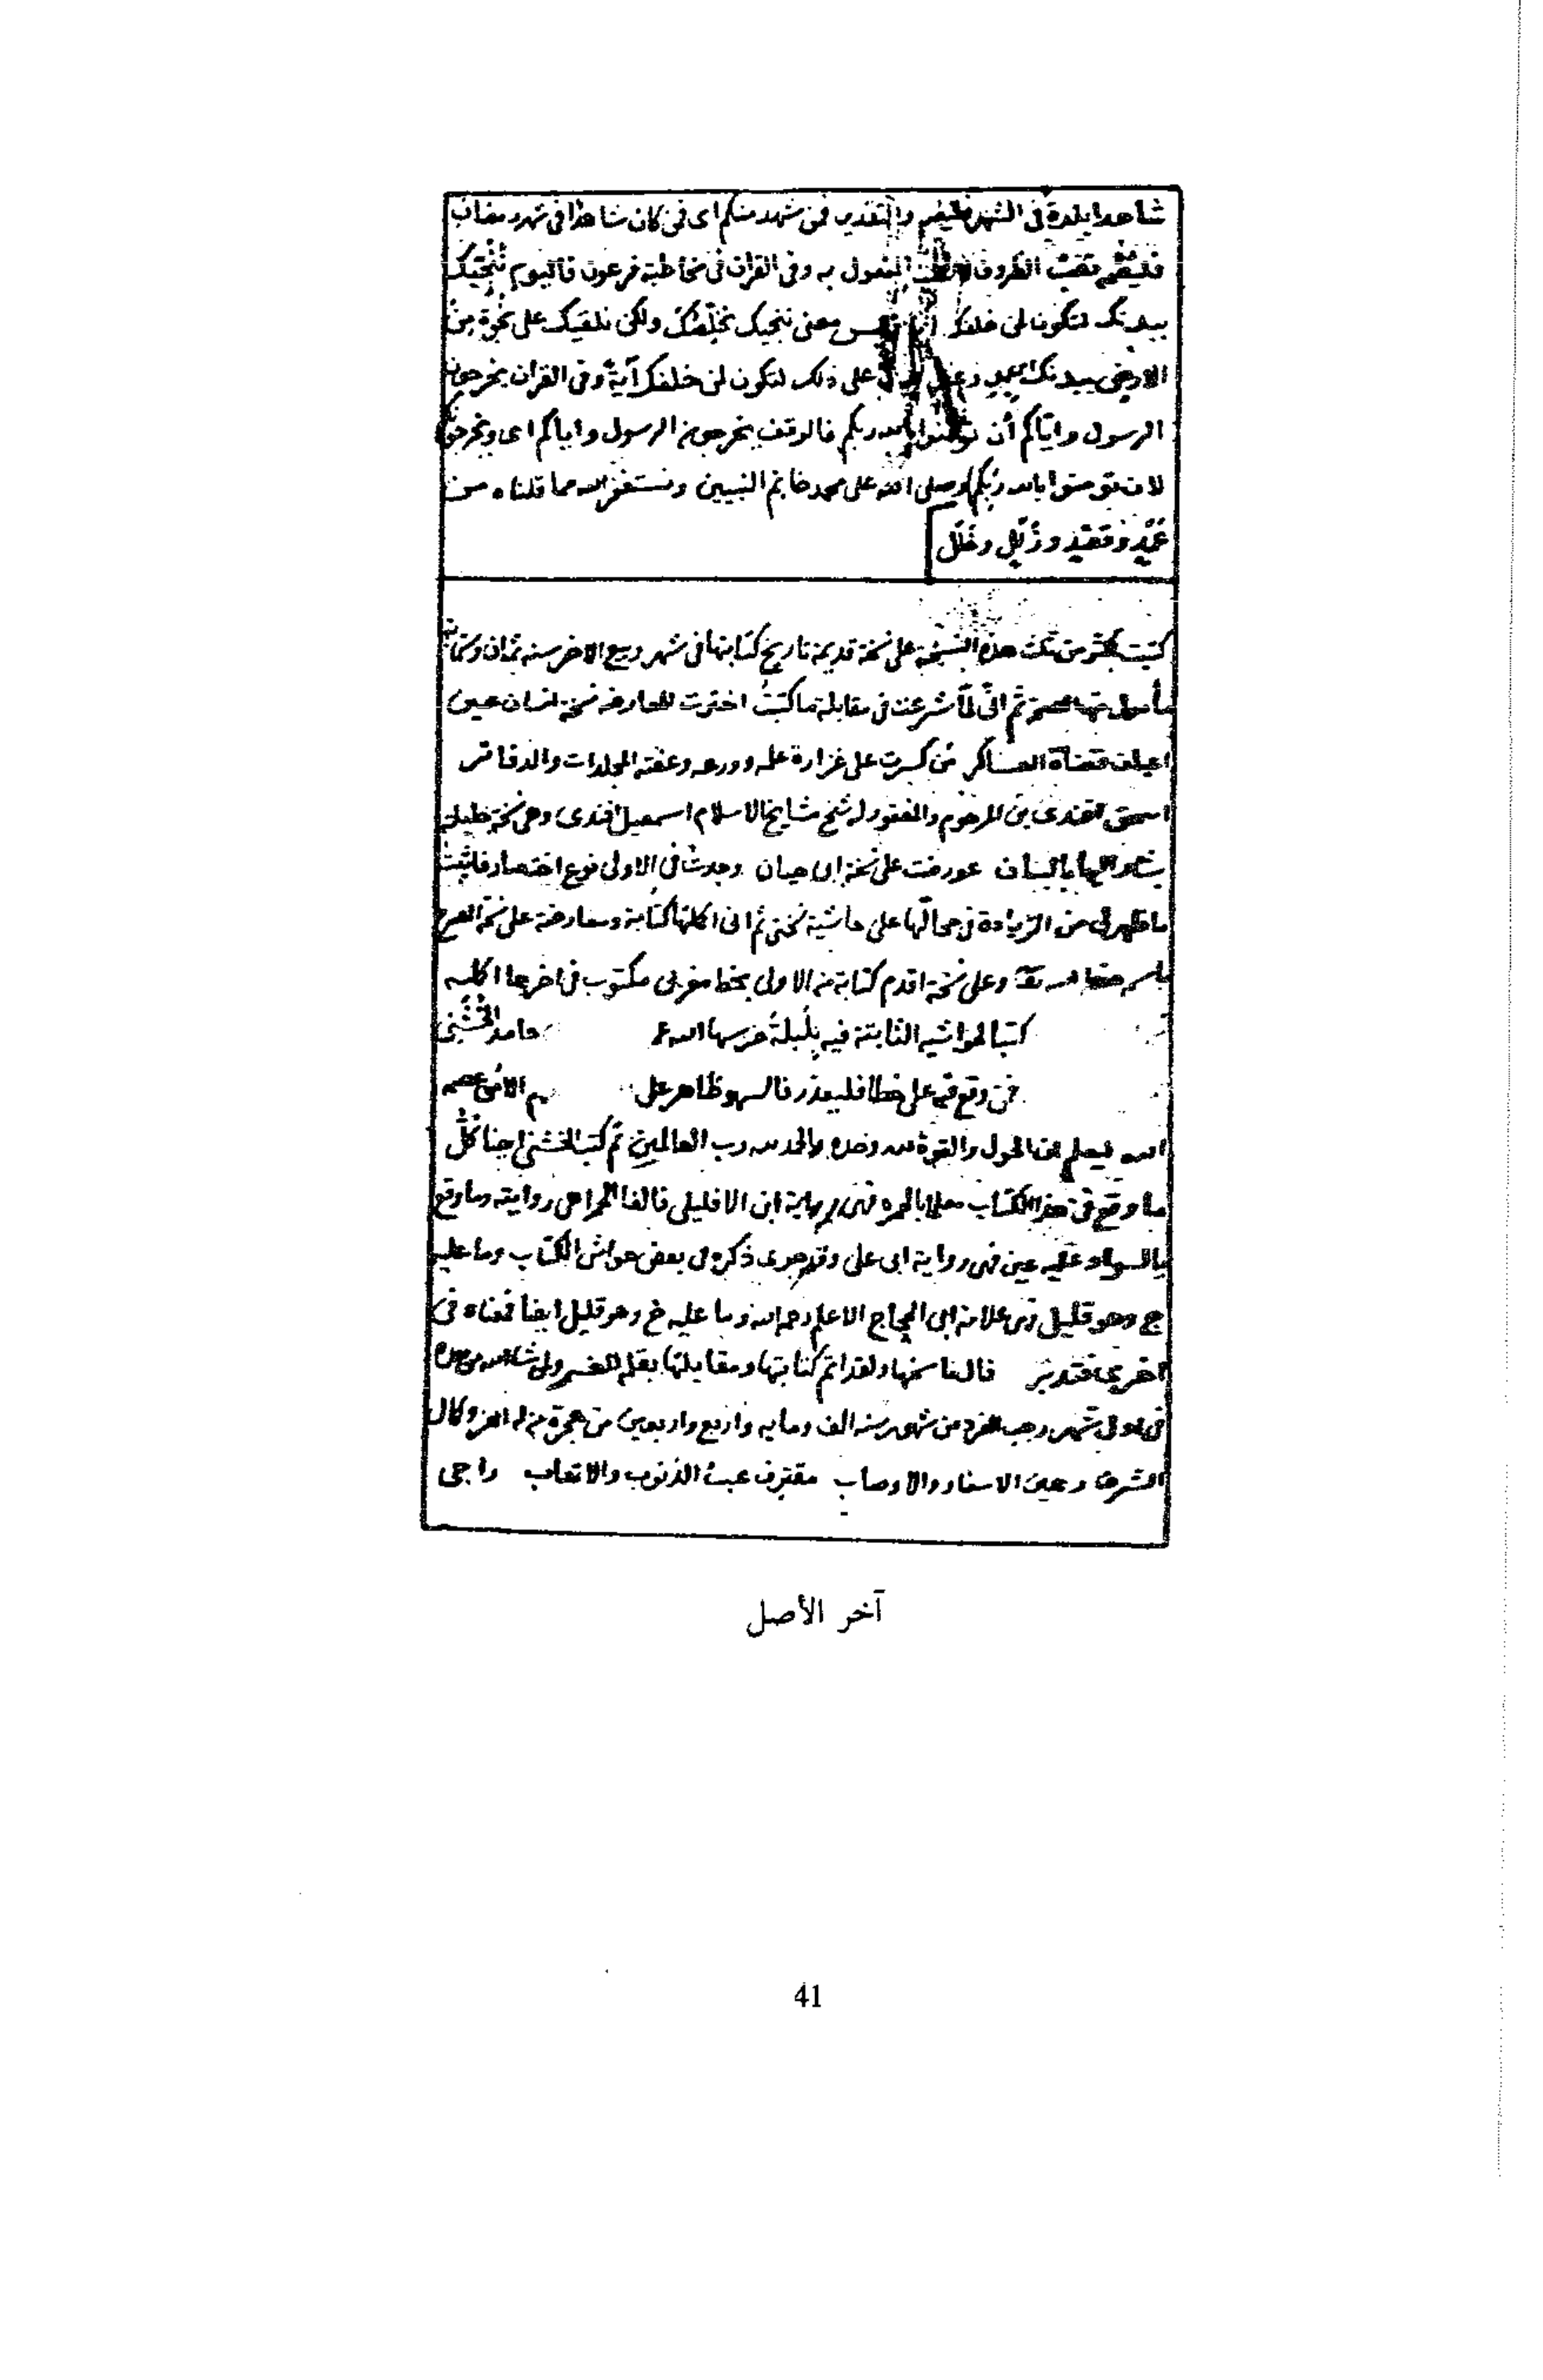 شاهدا بلدة فى الشهر فليقم والتقدير فمن شهد منكم اى فمن كان شاهدا فى شهر رمضان
فليقم نصب الظروف لا نصب المفعول به وفى القران فى مخاطبة فرعون فاليوم ننجيك
ببدنك لتكون لمن خلفك ليس معنى ننجيك نخلصك ولكن نلقيك على نجوة من
الارض ببدنك على ذلك لتكون لمن خلفك آية وفى القران يخرجون
الرسول واياكم أن تؤمنوا بالله ربكم فالوقف يخرجون الرسول واياكم اى ويخرجونكم
لان تومنوا بالله ربكم وصلى الله على محمد خاتم النبيين ونستغفر الله مما قلناه من
عمد وقصد وزلل وخلل
كتبت هذه النسخة على نسخة قديمة تاريخ كتابتها فى شهر ربيع الاخر سنه ثمان وثمانين
ثم انى لما شرعت فى مقابلة ما كتبت اخترت للمعارضه نسخة انسان عين
قضاة العساكر من كسرت على غزارة علمه وورعه وعفته المجلدات والدفاتر
اسحق افندى بن المرحوم والمغفور له شيخ مشايخ الاسلام اسمعيل افندى وهى نسخة جليلة
يشار اليها بالبنان عورضت على نسخة ابى حيان وجدت فى الاولى نوع اختصار فاثبت
ما ظهر لى من الزيادة فى محالها على حاشية نسختى ثم انى اكملتها كتابة ومعارضة على نسخة
وعلى نسخة اقدم كتابة من الاولى بخط مغربى مكتوب فى اخرها اكمله
كتبا لحواشيه الثابتة فيه بلبلة حرسها الله حامد الخشنى
فمن وقع فيه على خطا فليعذر فالسهو ظاهر على الامى عصمه
الله ليعلم ان الحول والقوة لله وحده والحمد لله رب العالمين ثم كتب الخشنى ايضا كل
ما وقع فى هذا الكتاب معلما بالحمره فهى رواية ابن الافليلى فالفا الحمرا هى روايته وما وقع
بالسواد عليه عين فهى رواية ابى على وقد جرى ذكره فى بعض حواشى الكتاب وما عليه
ج وهو قليل فهى علامة ابى الحجاج الاعلم رحمه الله وما عليه خ وهو قليل ايضا فمعناه فى
اخرى فتدبر قال ناسخها ولقد اتم كتابتها ومقابلتها بقلمه
فى اول شهر رجب الفرد من شهور سنه الف ومايه واربع واربعين من هجرة من له العز وكمال
الشرف رهين الاسفار والاوصاب مقترف عبث الذنوب والاتعاب راجى
آخر الأصل
41